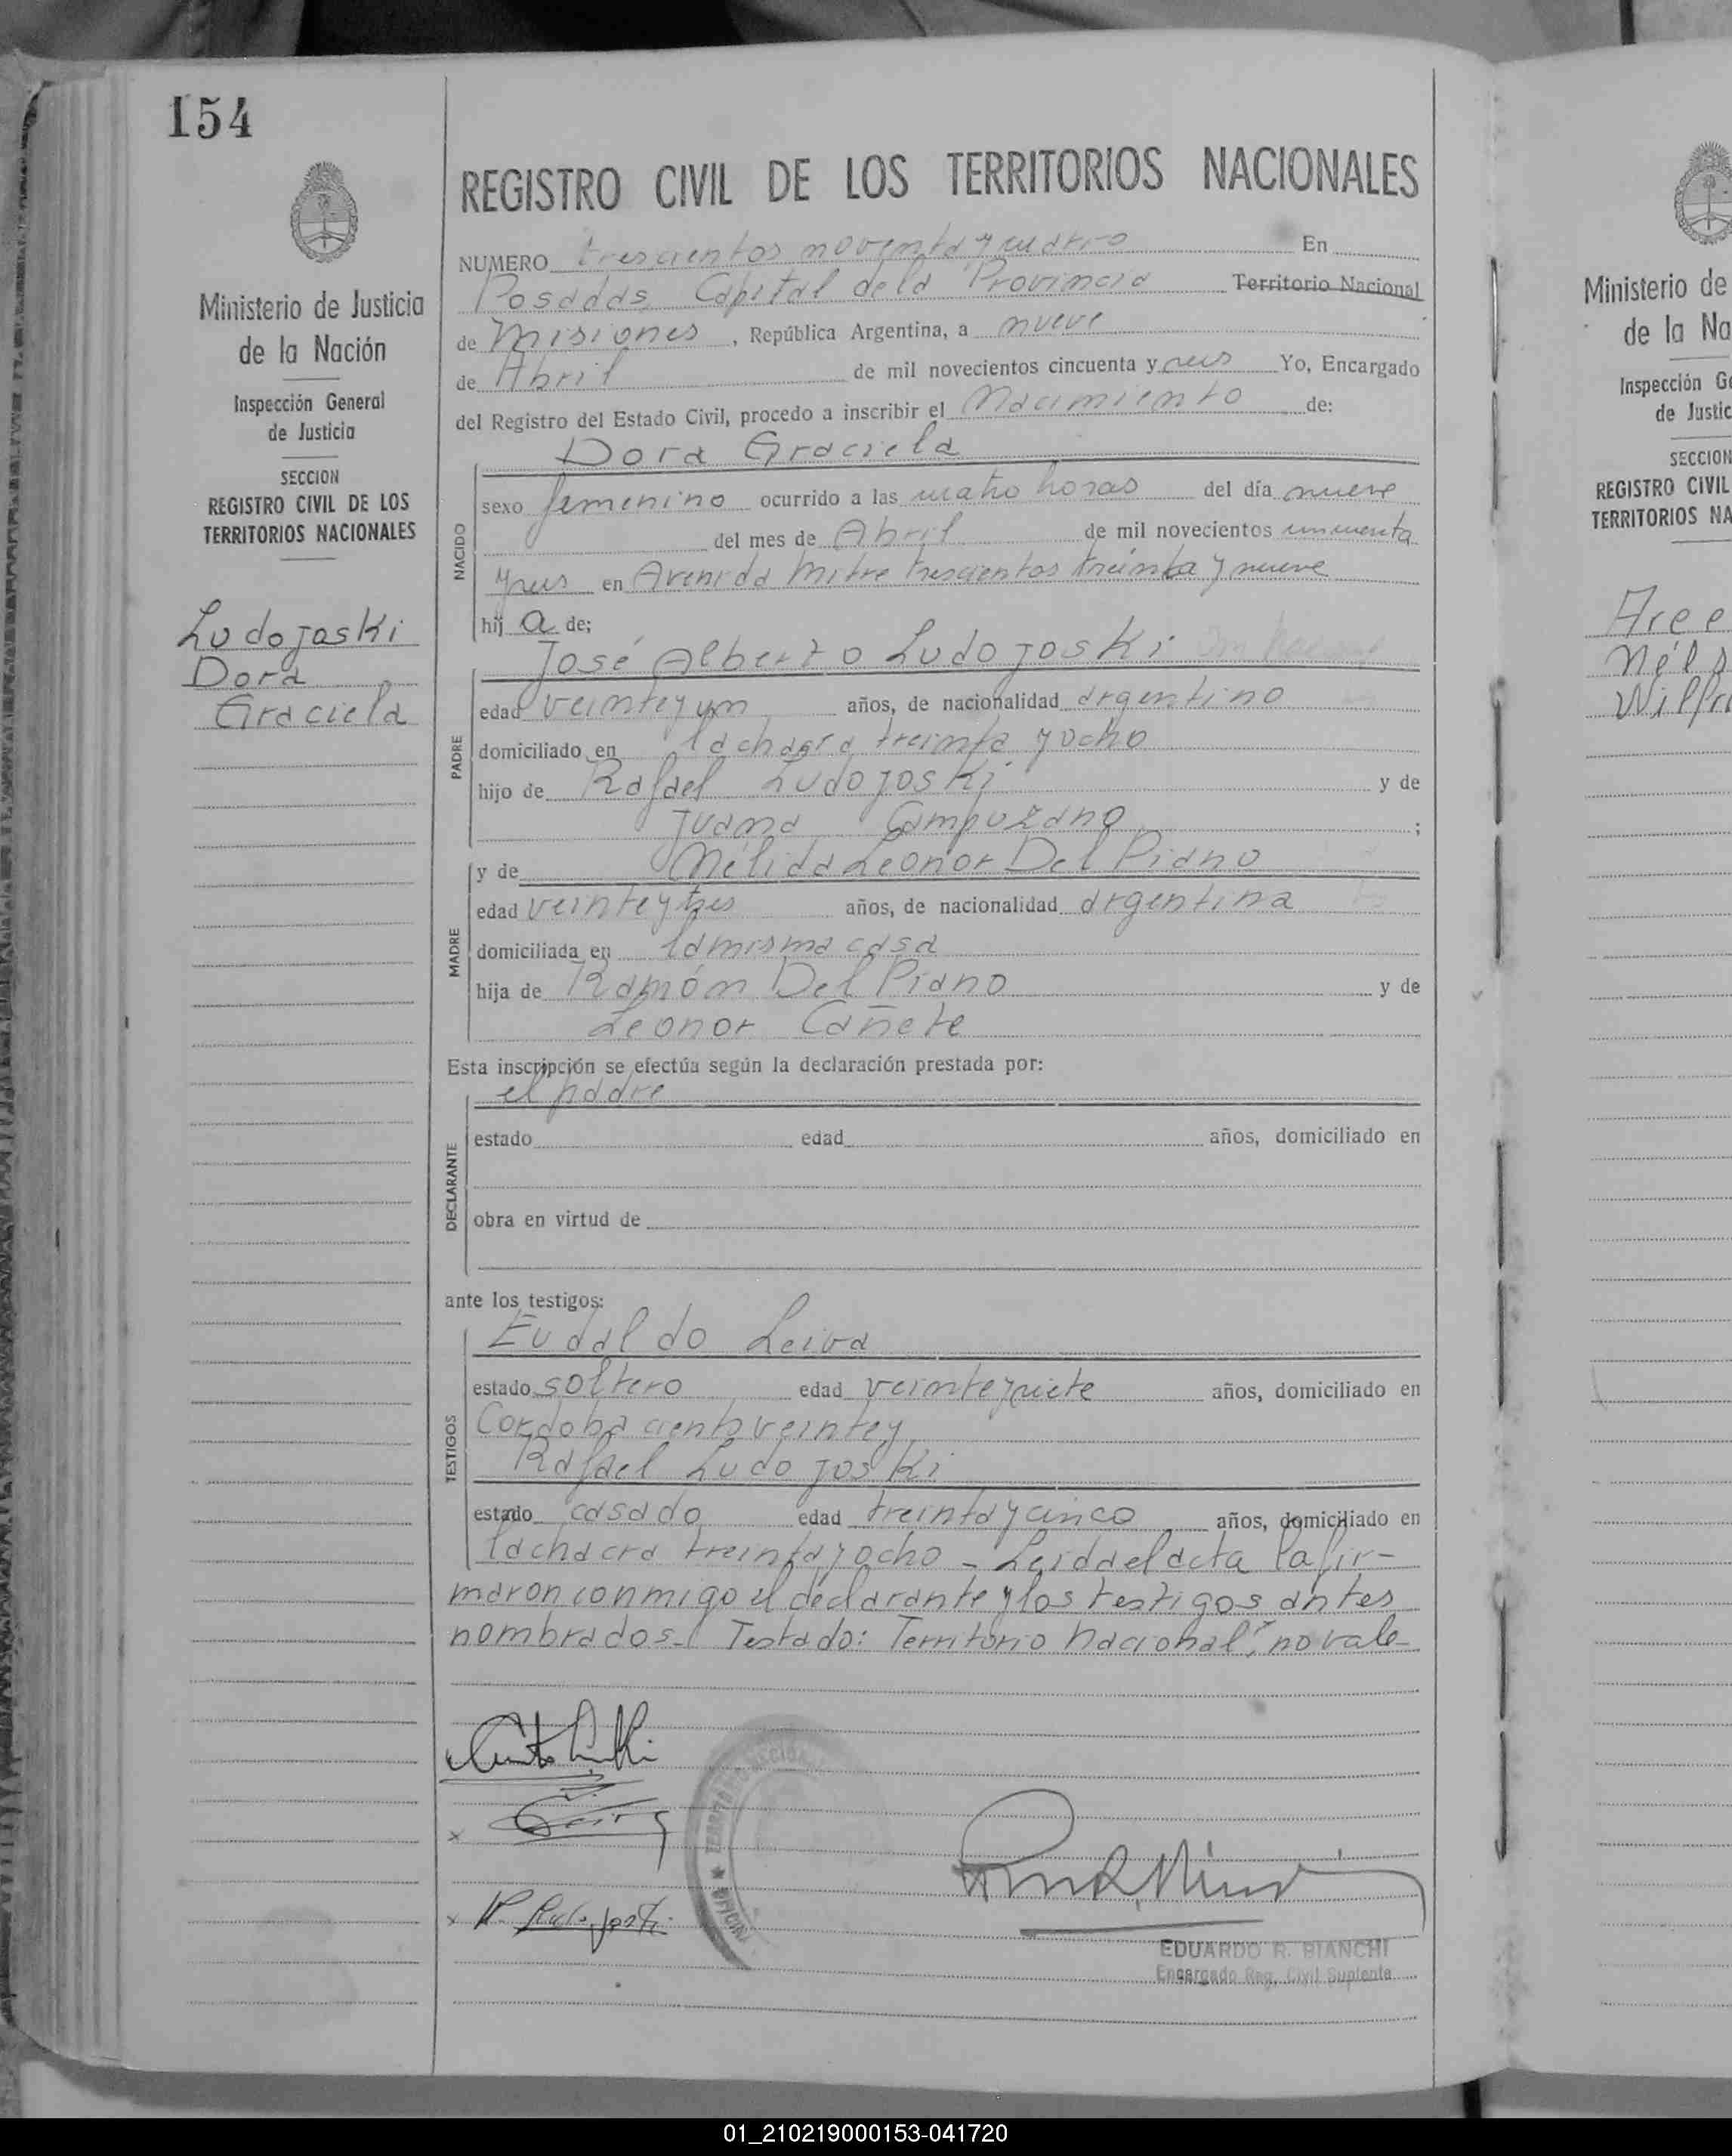 154
Ministerio de Justicia
de la Nación
Inspección General
de Justicia
SECCION
REGISTRO CIVIL DE LOS
TERRITORIOS NACIONALES
Ludojoski
Dora
Graciela
REGISTRO CIVIL DE LOS TERRITORIOS NACIONALES
NUMERO trescientos noventa y cuatro En
Posadas Capital de la Provincia Territorio Nacional
de Misiones, República Argentina, a nueve
de Abril de mil novecientos cincuenta y seis Yo, Encargado
del Registro del Estado Civil, procedo a inscribir el Nacimiento de:
Dora Graciela
NACIDO
sexo femenino ocurrido a las cuatro horas del día nueve
del mes de Abril de mil novecientos cincuenta
y seis en Avenida Mitre trescientos treinta y nueve
hij a de;
José Alberto Ludojoski
PADRE
edad veinte y un años, de nacionalidad argentino
domiciliado en la chacra treinta y ocho
hijo de Rafael Ludojoski y de
Juana Campuzano ;
y de Nélida Leonor Del Piano
MADRE
edad veinte y tres años, de nacionalidad argentina
domiciliada en la misma casa
hija de Ramón Del Piano y de
Leonor Cañete
Esta inscripción se efectúa según la declaración prestada por:
el padre
DECLARANTE
estado edad años, domiciliado en
obra en virtud de
ante los testigos:
Eudaldo Leiva
TESTIGOS
estado soltero edad veinte y siete años, domiciliado en
Cordoba ciento veinte y
Rafael Ludojoski
estado casado edad treinta y cinco años, domiciliado en
la chacra treinta y ocho - Leida el acta la fir-
maron conmigo el declarante y los testigos antes
nombrados - Testado: Territorio Nacional, no vale
R. Ludojoski
EDUARDO R. BIANCHI
Encargado Reg. Civil Suplente
OFICINA
Ministerio de
de la Na
Inspección Ge
de Justic
SECCION
REGISTRO CIVIL
TERRITORIOS NA
Nels
Wilfr
01_210219000153-041720